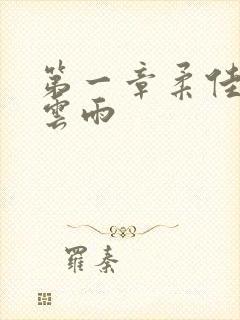 第一章柔佳
雲雨
羅秦